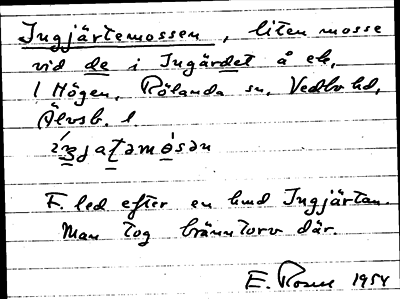 Ingjärtemossen, liten mosse
vid de i Ingärdet å ek,
1 Högen, Rölanda sn, Vedbo hd,
Älvsb. l.
F. led efter en hmd Ingjärtan.
Man tog bränntorv där.
E. Rosell 1954